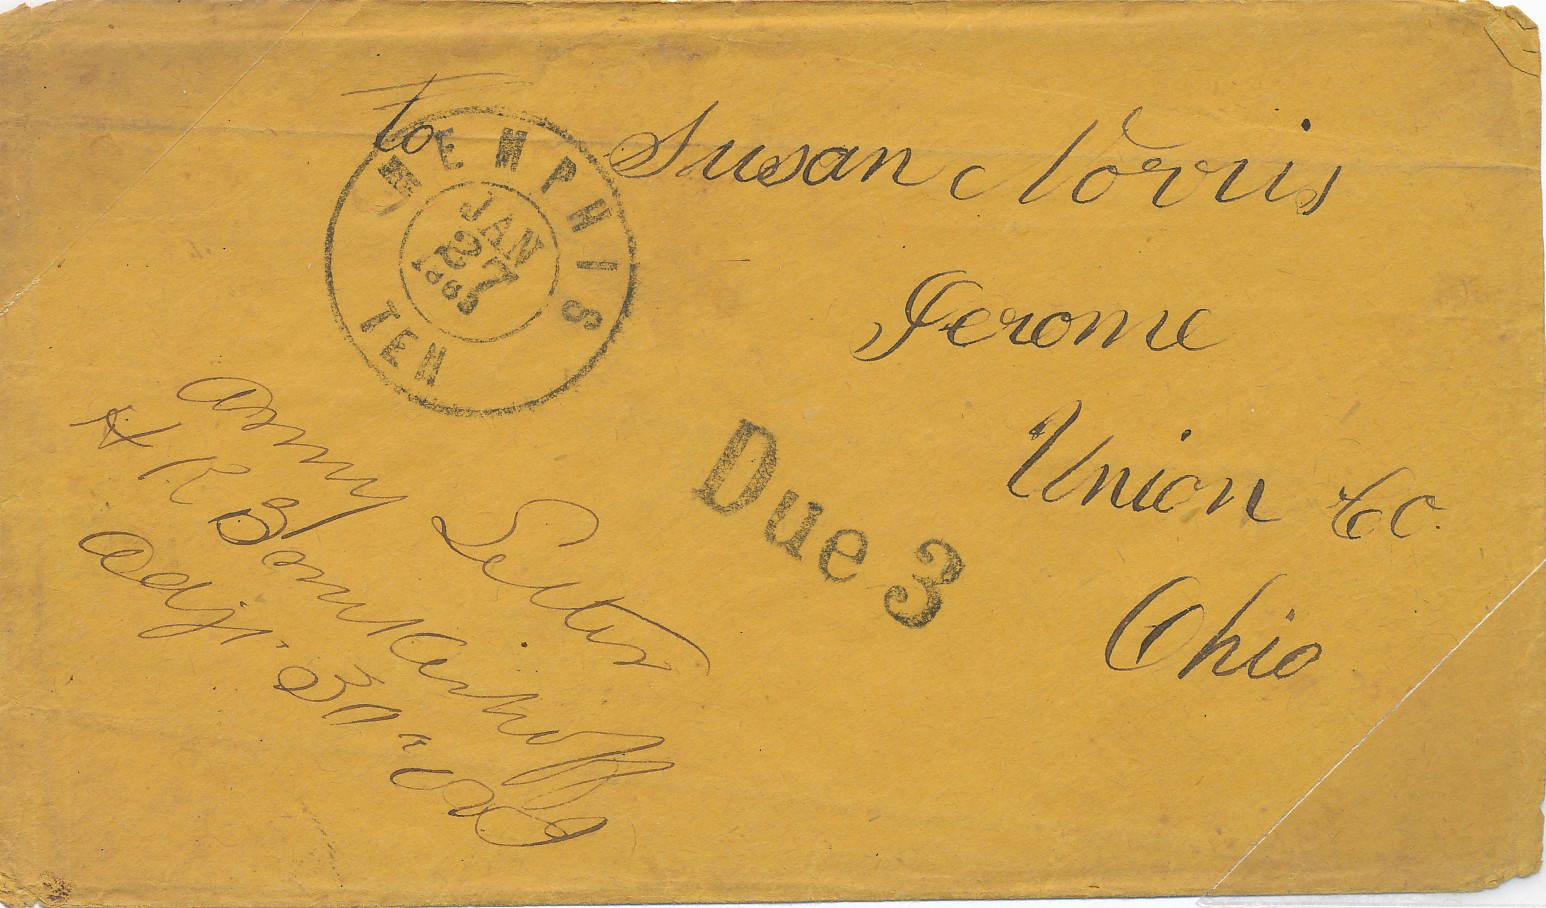 to Susan Norris
Jerome
Union Co.
Ohio
MEMPHIS
JAN
27
1865
TEN
Due 3
Army Letter
H R Brinkerhoff
Adjt.